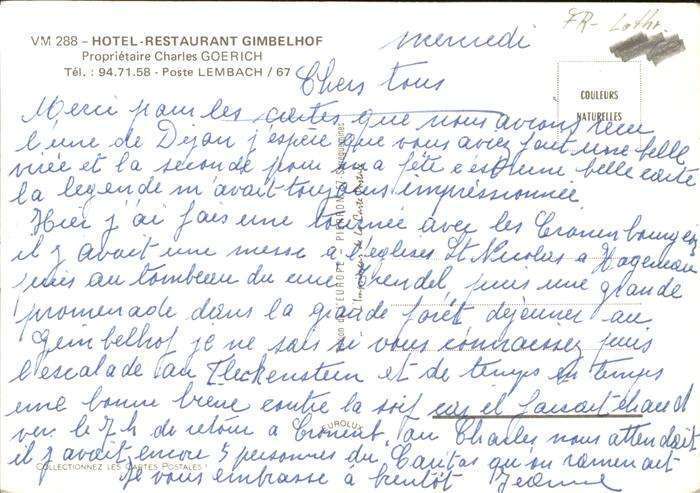 FR- Lothr.
VM 288 - HOTEL-RESTAURANT GIMBELHOF
Propriétaire Charles GOERICH
Tél. : 94.71.58 - Poste LEMBACH / 67
COULEURS
NATURELLES
mercredi
Chers tous
Merci pour les cartes que nous avions reçu
l'une de Dijon j'espère que vous avez fait une belle
virée et la seconde pour ma fête c'est une belle carte
la legende m'avait toujours impressionnée
Hier j'ai fais une tournée avec les Cronenbourgeois
il y avait une messe a l'eglises St Nicolas a Haguenau
puis au tombeau du curé puis une grande
promenade dans la grande forêt déjeuner au
Gimbelhof je ne sais si vous connaissez puis
l'escalade au Fleckenstein et de temps en temps
une bonne biere contre la soif car il faisait chaud
vers le 7h de retour a Cronenb. au Charles nous attendait
il y avait encore 5 personnes du Caritas qu'on ramenait
Je vous embrasse à bientôt Jeanne
EUROLUX
COLLECTIONNEZ LES CARTES POSTALES !